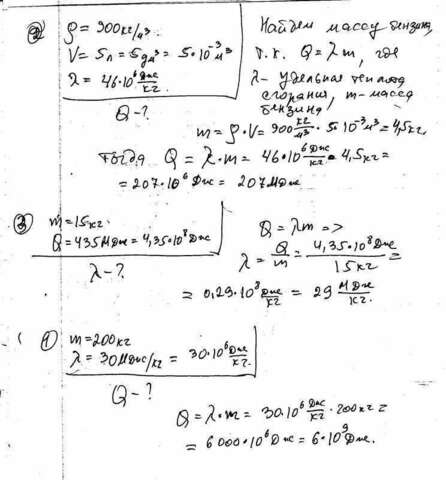 ② ρ = 900 кг/м³
V = 5л = 5 дм³ = 5·10⁻³ м³
λ = 46·10⁶ Дж/кг
Q-?
Найдем массу бензина,
т.к. Q = λm, где
λ - удельная теплота
сгорания, m - масса
бензина
m = ρ·V = 900 кг/м³ · 5·10⁻³ м³ = 4,5кг.
тогда Q = λ·m = 46·10⁶ Дж/кг · 4,5кг =
= 207·10⁶ Дж = 207 МДж
③ m = 15кг.
Q = 435 МДж = 4,35·10⁸ Дж
λ-?
Q = λm =>
λ = Q/m = 4,35·10⁸ Дж / 15 кг =
= 0,29·10⁸ Дж/кг = 29 МДж/кг.
① m = 200 кг
λ = 30 МДж/кг = 30·10⁶ Дж/кг.
Q-?
Q = λ·m = 30·10⁶ Дж/кг · 200 кг =
= 6000·10⁶ Дж = 6·10⁹ Дж.